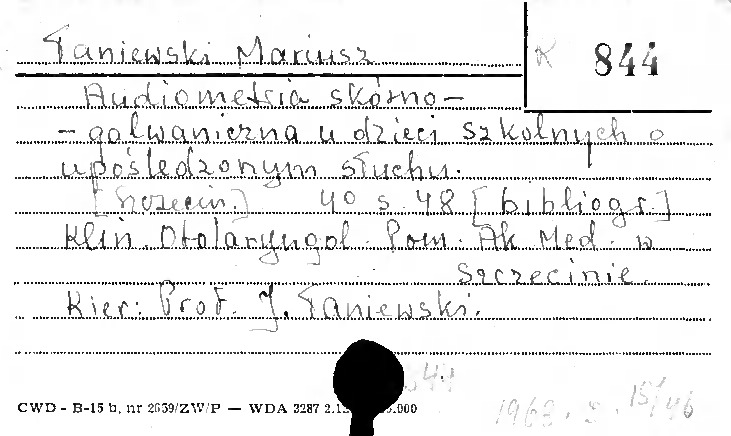 Łaniewski Mariusz
K 844
Audiometria skórno-
-galwaniczna u dzieci szkolnych o
upośledzonym słuchu.
[Szczecin.] 4° s. 48 [bibliogr.]
Klin. Otolaryngol. Pom. Ak. Med. w
Szczecinie.
Kier: Prof. J. Łaniewski.
844
CWD - B-15 b, nr 2659/ZW/P — WDA 3287
1968. 15/46